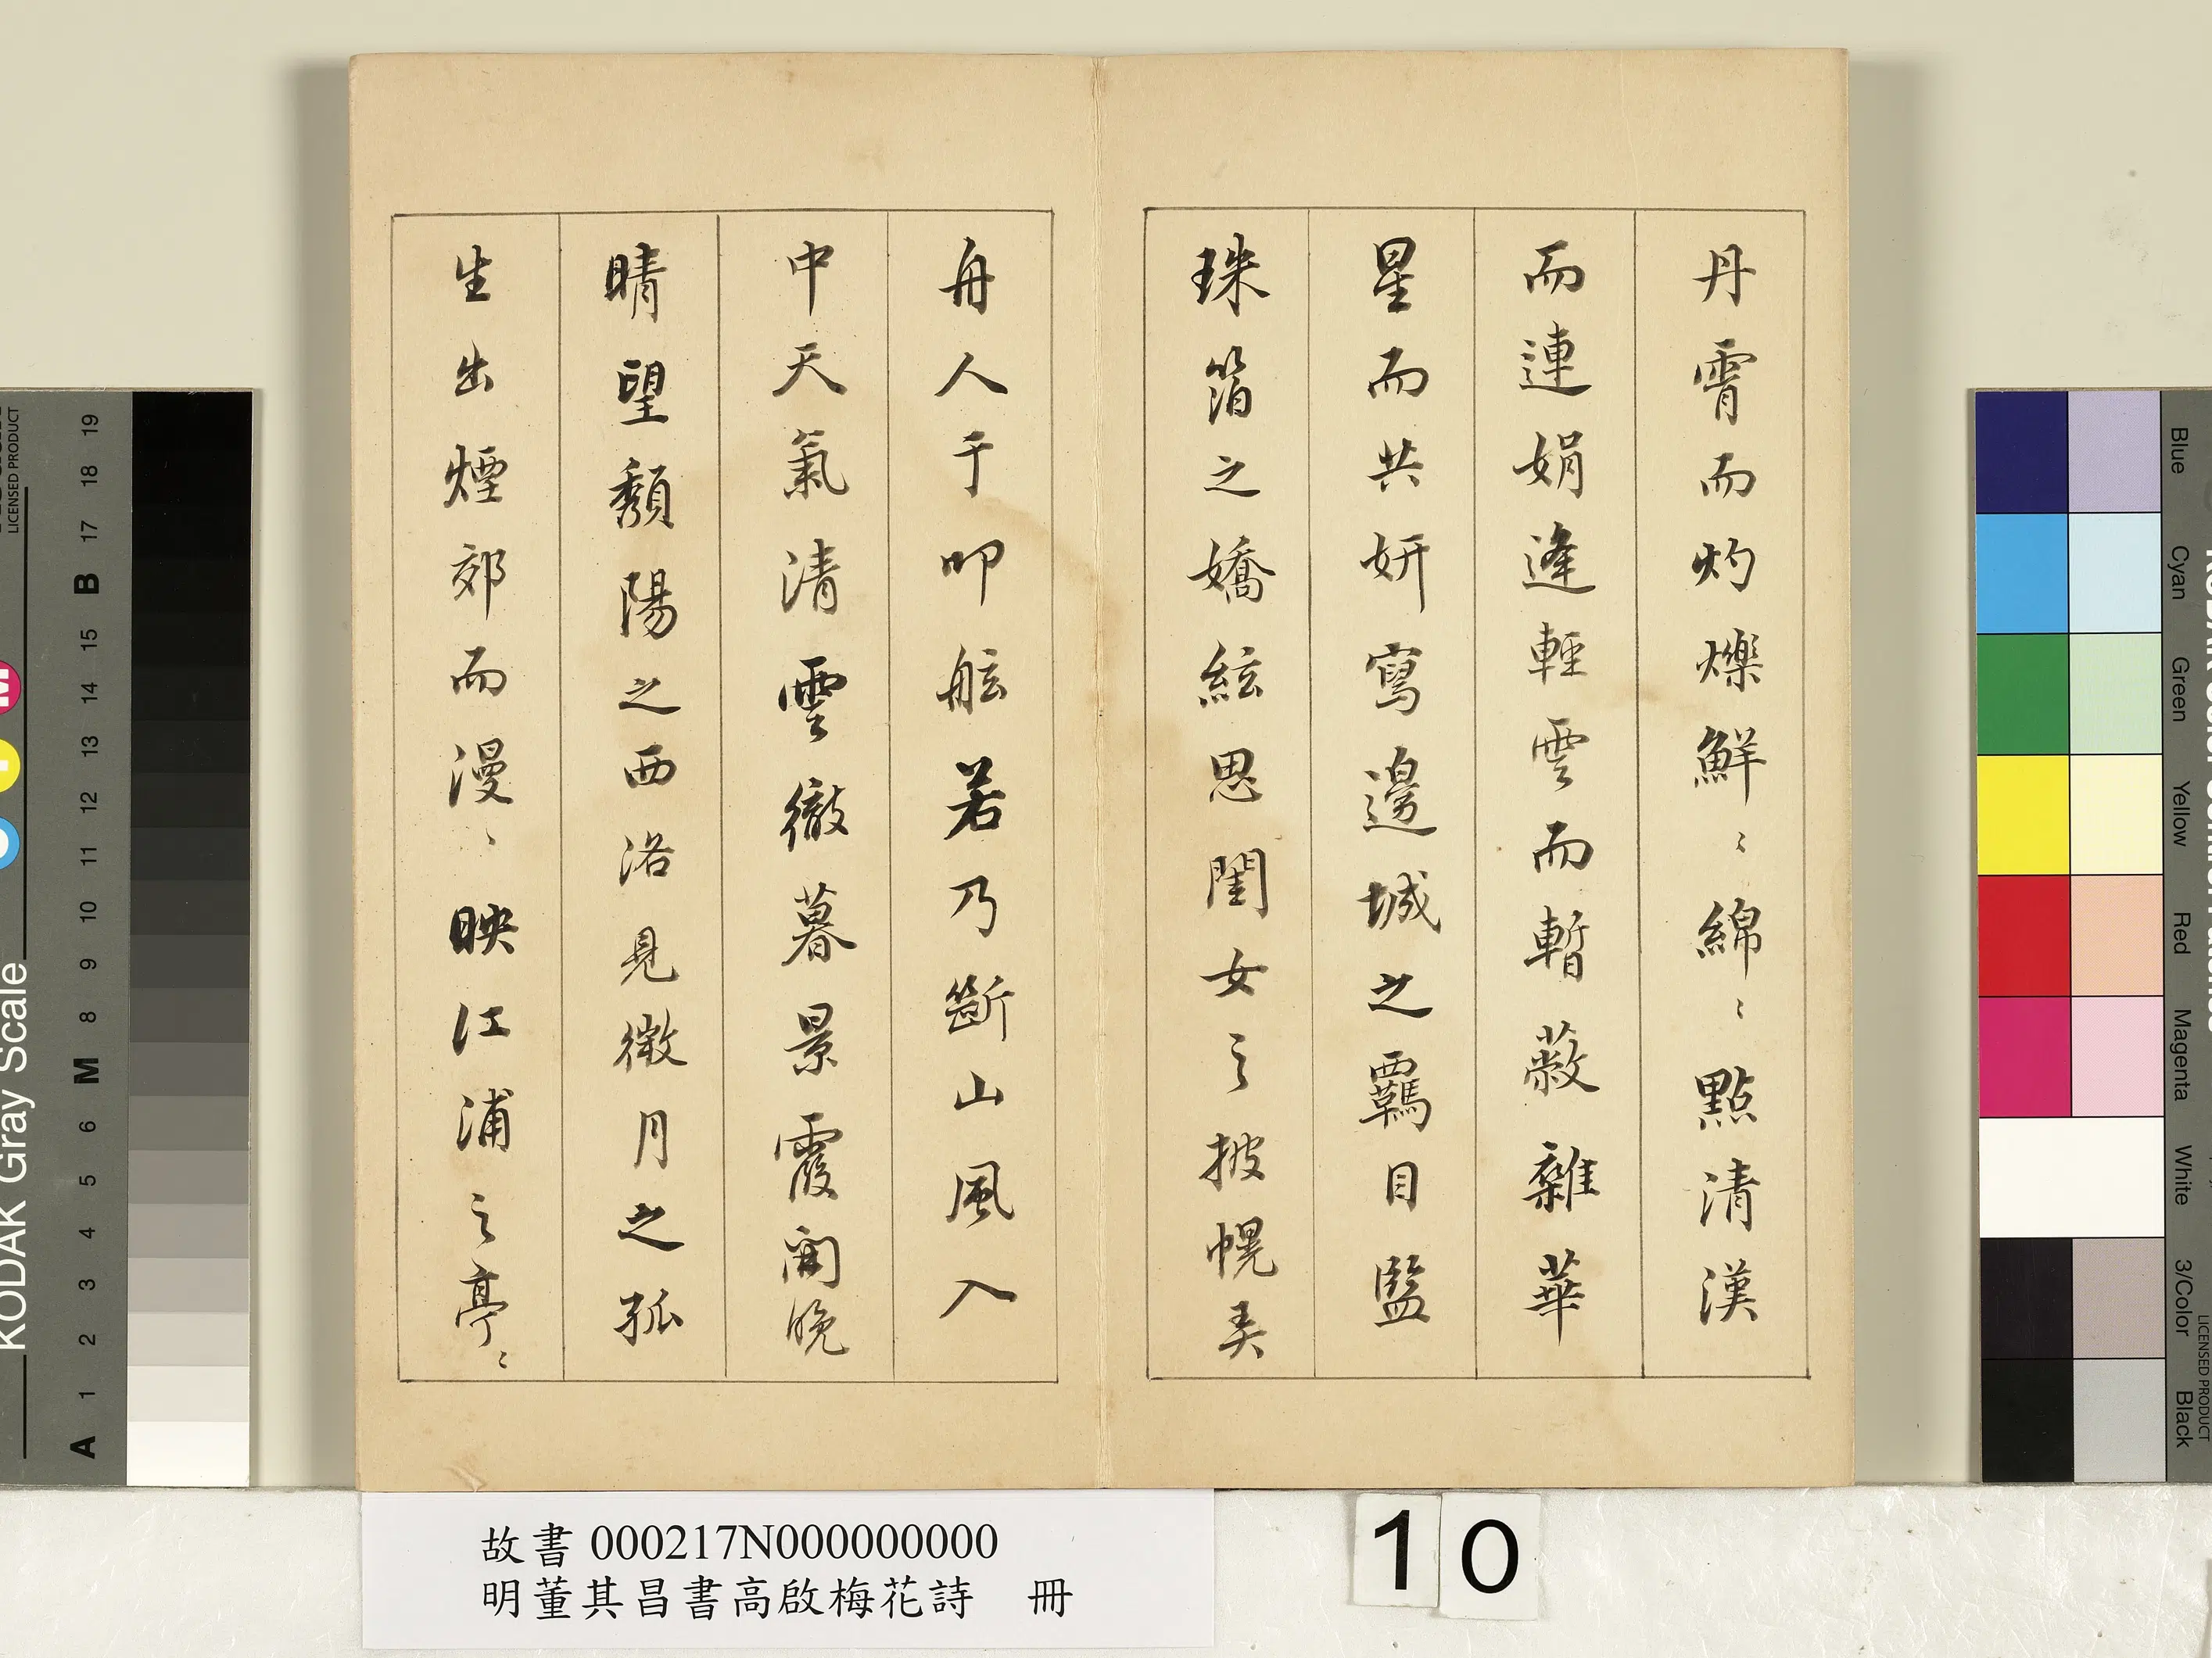 丹霄而灼爍鮮〻綿〻點清漢
而連娟逢輕雲而暫蔽雜華
星而共妍寫邊城之羈目監
珠箔之嬌絃思閨女之披幌
舟人于叩舷若乃斷山風入
中天氣清雲徹暮景霞開晚
晴望頹陽之西洛見微月之孤
生出煙郊而漫〻映江浦之亭〻
故書 000217N000000000
明董其昌書高啟梅花詩 冊
10
KODAK Gray Scale
A 1 2 3 4 5 6 M 8 9 10 11 12 13 14 15 B 17 18 19
LICENSED PRODUCT
Blue
Cyan
Green
Yellow
Red
Magenta
White
3/Color
Black
LICENSED PRODUCT